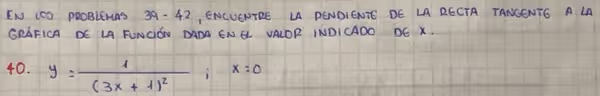 EN LOS PROBLEMAS 39-42, ENCUENTRE LA PENDIENTE DE LA RECTA TANGENTE A LA
GRÁFICA DE LA FUNCIÓN DADA EN EL VALOR INDICADO DE X.
40. y = 1 / (3x + 1)² ; x=0